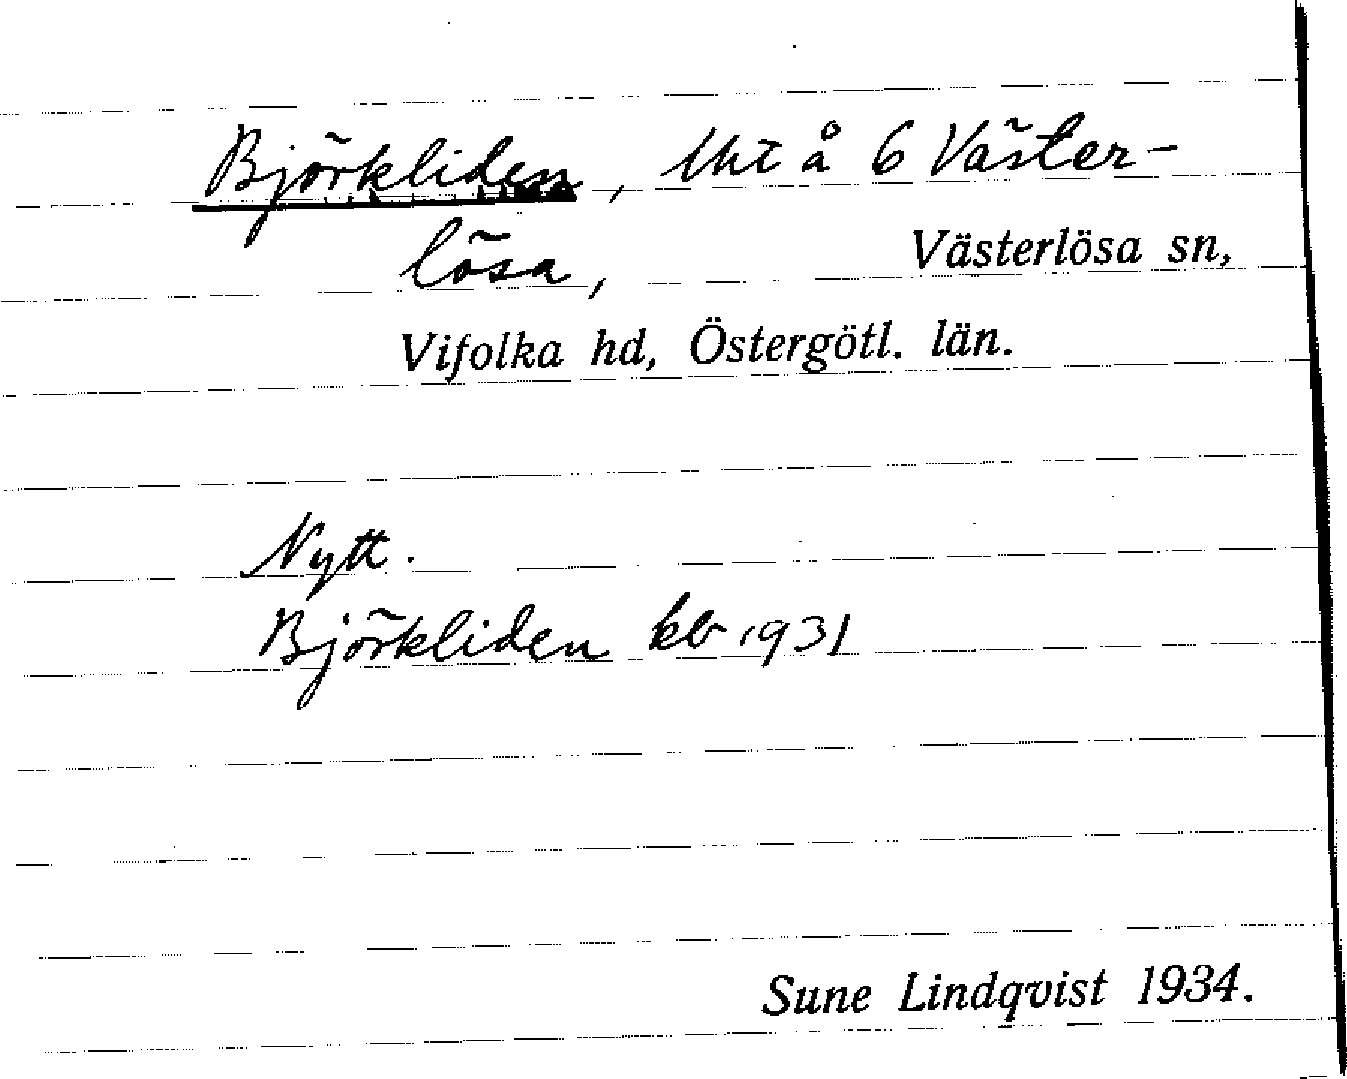 Björkliden, lht å 6 Väster-
lösa, Västerlösa sn,
Vifolka hd, Östergötl. län.
Nytt.
Björkliden kb 1931
Sune Lindqvist 1934.